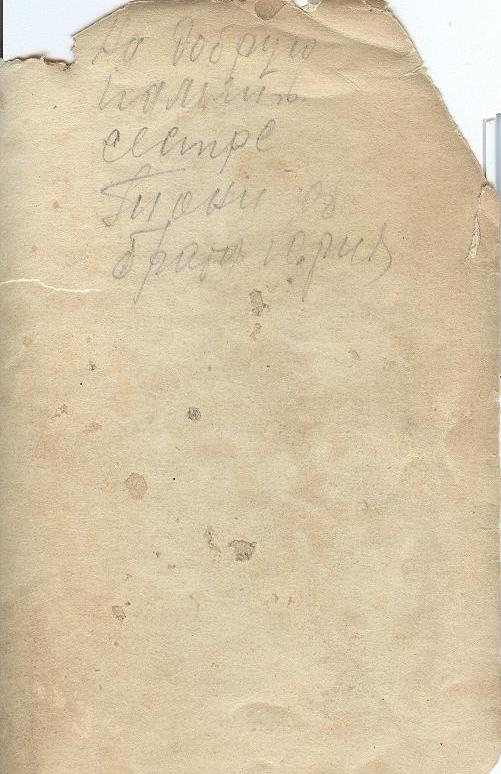 На добрую
память
сестре
Тоони от
брата Юрия